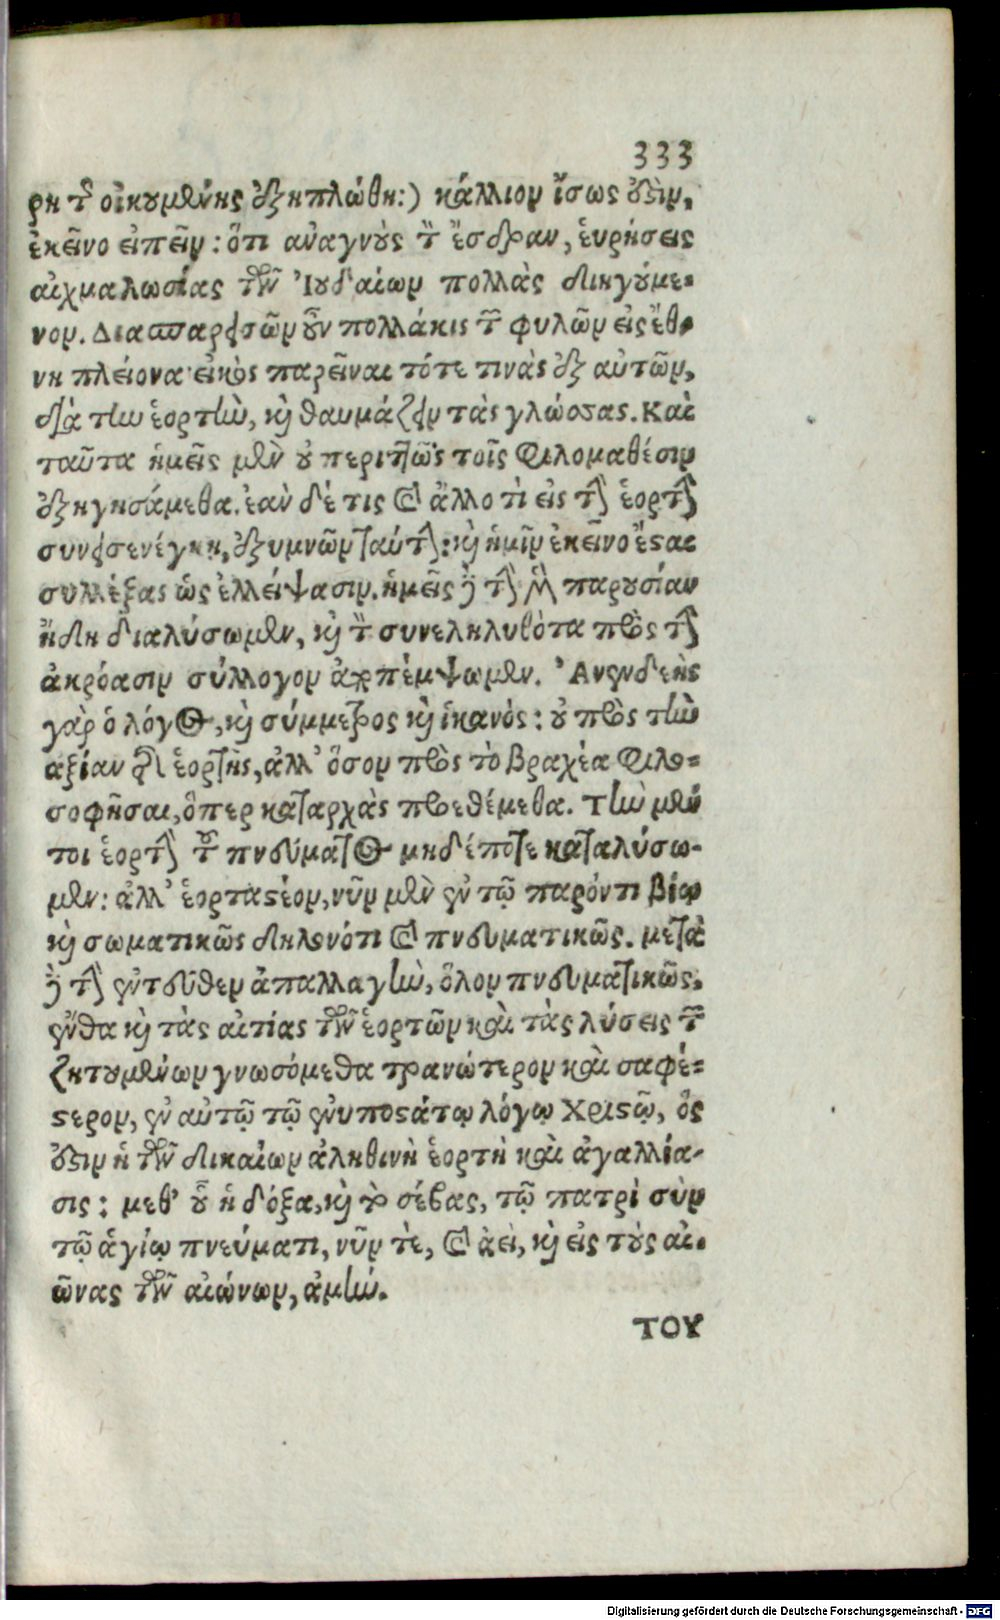 333
ρη τῆς οἰκουμένης ἐξηπλώθη:) κάλλιον ἴσως ἐστὶν,
ἐκεῖνο εἰπεῖν: ὅτι ἀναγνοὺς τὸν ἔσδραν, ἑυρήσεις
αἰχμαλωσίας τῶν Ἰουδαίων πολλὰς διηγούμε-
νον. Διασπαρεισῶν οὖν πολλάκις τῶν φυλῶν εἰς ἔθ-
νη πλείονα εἰκὸς παρεῖναι τότε τινὰς ἐξ αὐτῶν,
διὰ τὴν ἑορτὴν, καὶ θαυμάζειν τὰς γλώσσας. Καὶ
ταῦτα ἡμεῖς μὲν οὐ περιττῶς τοῖς φιλομαθέσιν
ἐξηγησάμεθα. ἐὰν δέ τις καὶ ἄλλο τὶ εἰς τὴν ἑορτὴν
συνεισενέγκῃ, ἐξυμνῶν ταύτην: καὶ ἡμῖν ἐκεῖνο ἔσται
συλλέξας ὡς ἐλλείψασιν. ἡμεῖς δὲ τὴν μὲν παρουσίαν
ἤδη διαλύσωμεν, καὶ τὸν συνεληλυθότα πρὸς τὴν
ἀκρόασιν σύλλογον ἀποπέμψωμεν. Ἀνενδεὴς
γὰρ ὁ λόγος, καὶ σύμμετρος καὶ ἱκανὸς: οὐ πρὸς τὴν
ἀξίαν τῆς ἑορτῆς, ἀλλ' ὅσον πρὸς τὸ βραχέα φιλο-
σοφῆσαι, ὅπερ καταρχὰς προεθέμεθα. Τὴν μέν
τοι ἑορτὴν τοῦ πνεύματος μηδέποτε καταλύσω-
μεν: ἀλλ' ἑορταστέον, νῦν μὲν ἐν τῷ παρόντι βίῳ
καὶ σωματικῶς δηλονότι καὶ πνευματικῶς. μετὰ
δὲ τὴν ἐντεῦθεν ἀπαλλαγὴν, ὅλον πνευματικῶς.
ἔνθα καὶ τὰς αἰτίας τῶν ἑορτῶν καὶ τὰς λύσεις τῶν
ζητουμένων γνωσόμεθα τρανώτερον καὶ σαφέ-
στερον, ἐν αὐτῷ τῷ ἐνυποστάτῳ λόγῳ Χριστῷ, ὅς
ἐστιν ἡ τῶν δικαίων ἀληθινὴ ἑορτὴ καὶ ἀγαλλία-
σις: μεθ' οὗ ἡ δόξα, καὶ τὸ σέβας, τῷ πατρὶ σὺν
τῷ ἁγίῳ πνεύματι, νῦν τὲ, καὶ ἀεὶ, καὶ εἰς τοὺς αἰ-
ῶνας τῶν αἰώνων, ἀμήν.
ΤΟΥ
Digitalisierung gefördert durch die Deutsche Forschungsgemeinschaft - DFG